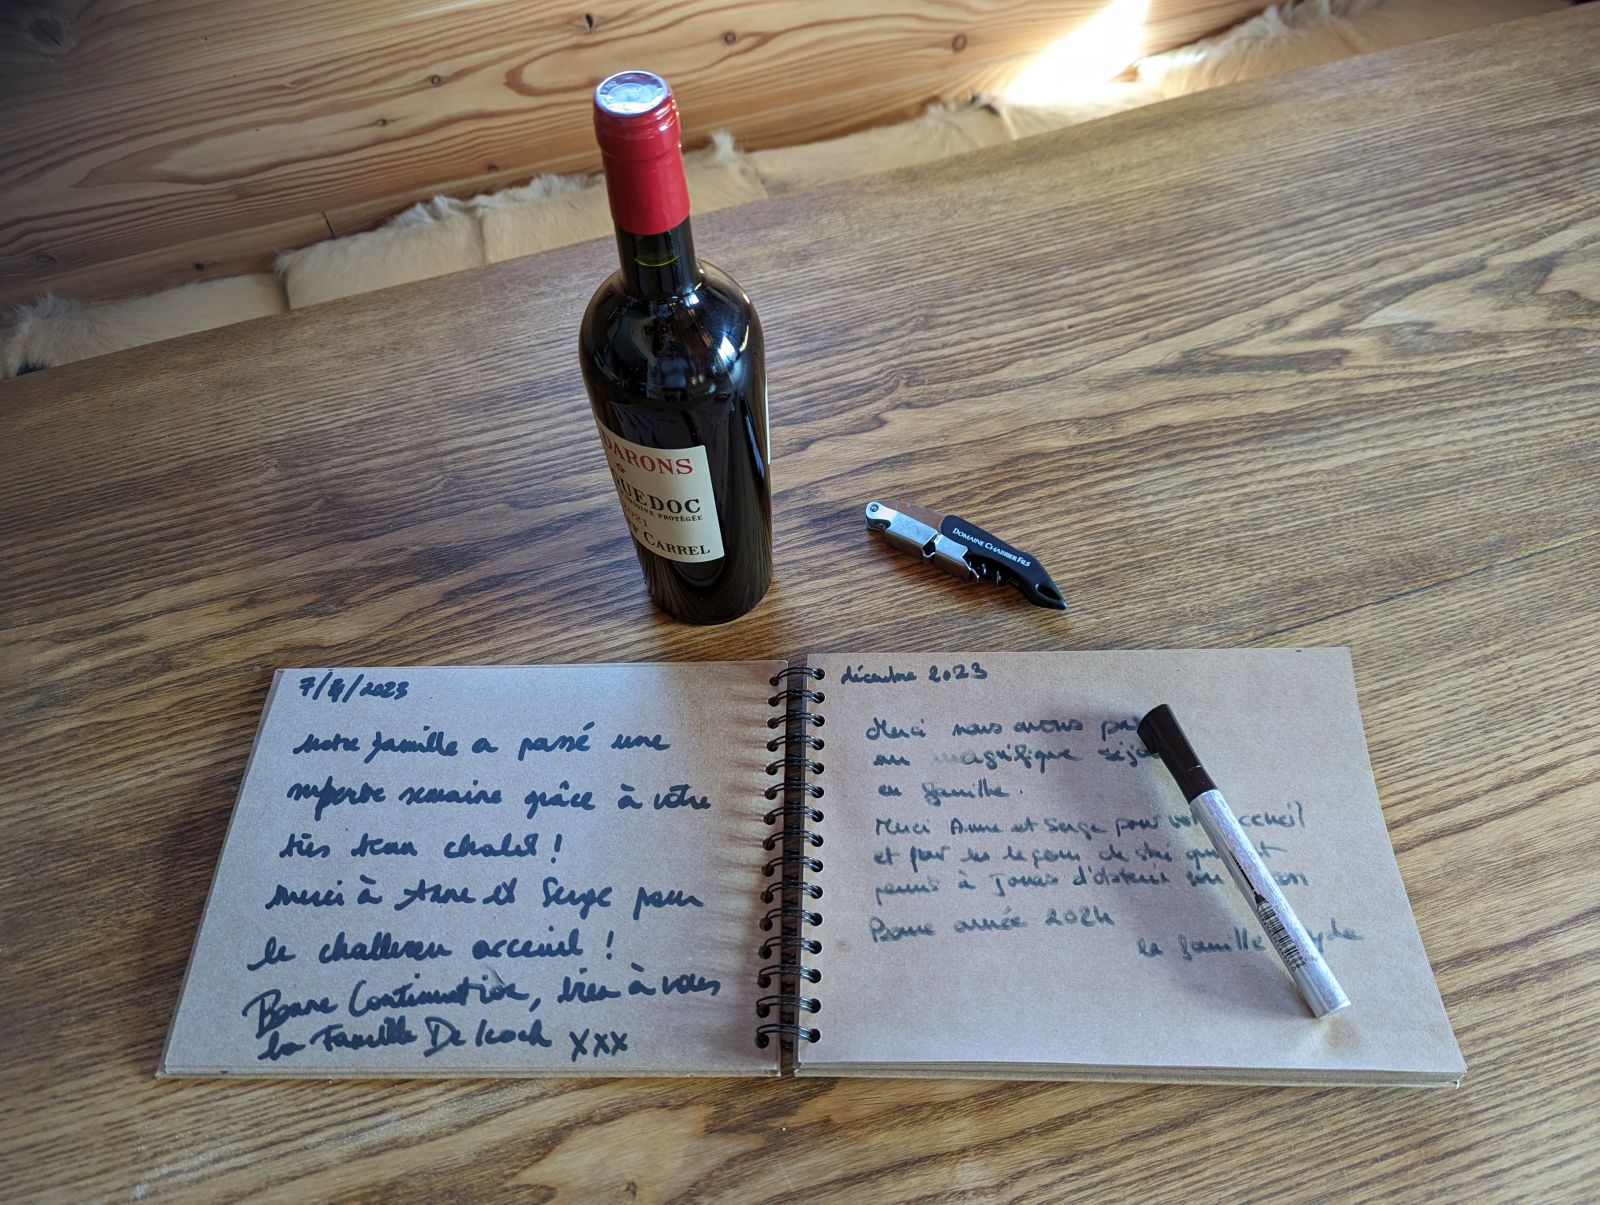 DARONS
GUEDOC
ORIGINE PROTÉGÉE
2021
CARREL
DOMAINE CHABRIER FILS
7/4/2023
Notre famille a passé une
superbe semaine grâce à votre
très beau chalet !
Merci à Anne et Serge pour
le chaleureux acceuil !
Bonne Continuation, bien à vous
la Famille De Kock XXX
décembre 2023
Merci nous avons pa
un magnifique séjo
en famille.
Merci Anne et Serge pour vot ccueil
et pour les leçons de ski qui t
permis à Jonas d'obtenir son on
Bonne année 2024
la famille yde